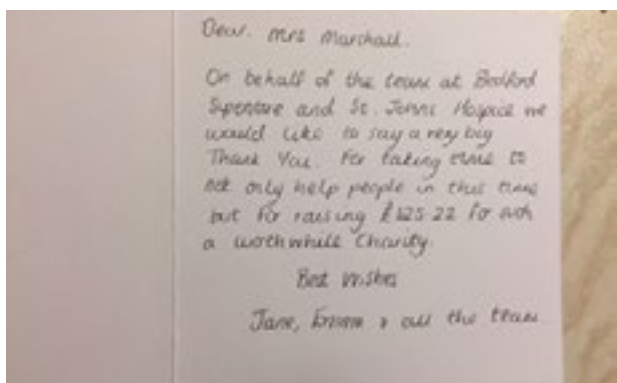 Dear. Mrs Marshall.
On behalf of the team at Bedford
Superstore and St. Johns Hospice we
would like to say a very big
Thank You. For taking time to
not only help people in this time
but for raising £125.22 for such
a worthwhile Charity.
Best Wishes
Jane, & all the team